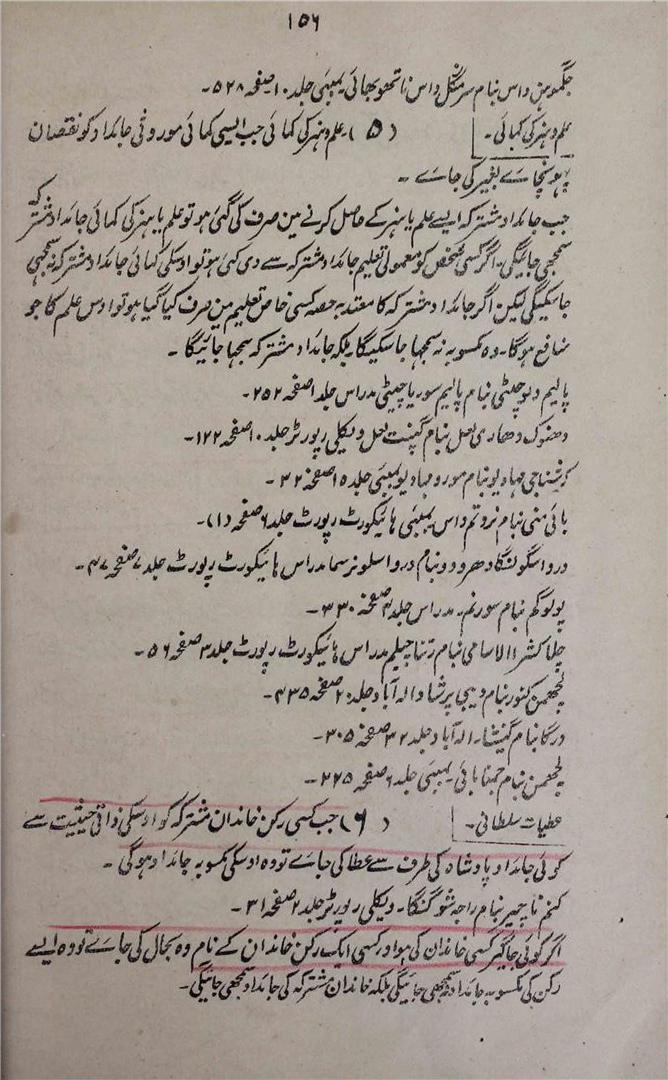 ۱۵۶
جگموہن داس بنام سر منگل داس ناتھو بھائی بمبئی جلد ۱۰ صفحہ ۵۲۸۔
علم و ہنر کی کمائی۔ (۵) علم و ہنر کی کمائی جب ایسی کمائی موروثی جائداد کو نقصان
پہونچاے بغیر کی جاے۔
جب جائداد مشترکہ ایسے علم یا ہنر کے حاصل کرنے مین صرف کی گئی ہو تو علم یا ہنر کی کمائی جائداد مشترکہ
سمجھی جائیگی۔ اگر کسی شخص کو معمولی تعلیم جائداد مشترکہ سے دی گئی ہو تو اوسکی کمائی جائداد مشترکہ نہ سمجھی
جاسکیگی لیکن اگر جائداد مشترکہ کا معتدبہ حصہ کسی خاص تعلیم مین صرف کیا گیا ہو تو اوس علم کا جو
منافع ہوگا۔ وہ مکسوبہ نہ سمجھا جاسکیگا بلکہ جائداد مشترکہ سمجھا جائیگا۔
پالیم ولو چٹی بنام پالیم سوریا چیٹی مدراس جلد ۱ صفحہ ۲۵۲۔
دھنوک دھاری لعل بنام گنپت لعل ویکلی رپورٹر جلد ۱۰ صفحہ ۱۲۲۔
کرشناجی مہادیو بنام مورو مہادیو بمبئی جلد ۱۵ صفحہ ۳۲۔
بائی منی بنام نروتم داس بمبئی ہائیکورٹ رپورٹ جلد ۶ صفحہ (۱)۔
درواسگولنگادھرودو بنام درواسلونرسما مدراس ہائیکورٹ رپورٹ جلد ۷ صفحہ ۴۷۔
پولوگم بنام سورنم۔ مدراس جلد ۴ صفحہ ۳۳۰۔
چلاکنڈالاسامی بنام رتناچیلم مدراس ہائیکورٹ رپورٹ جلد ۲ صفحہ ۵۶۔
لچھمن کنور بنام دیبی پرشاد الہ آباد جلد ۲۰ صفحہ ۴۳۵۔
درگا بنام گنیشا۔ الہ آباد جلد ۳۲ صفحہ ۳۰۵۔
لچھمن بنام جمنا بائی بمبئی جلد ۶ صفحہ ۲۲۵۔
عطیات سلطانی۔ (۶) جب کسی رکن خاندان مشترکہ کو اوسکی ذاتی حیثیت سے
کوئی جائداد پادشاہ کی طرف سے عطا کی جاے تو وہ اوسکی مکسوبہ جائداد ہوگی۔
کنم ناچیر بنام راجہ شوگنگا۔ ویکلی رپورٹر جلد ۲ صفحہ ۳۱۔
اگر کوئی جاگیر کسی خاندان کی ہو اور کسی ایک رکن خاندان کے نام وہ بحال کی جاے تو وہ ایسے
رکن کی مکسوبہ جائداد نہ سمجھی جائیگی بلکہ خاندان مشترکہ کی جائداد سمجھی جائیگی۔